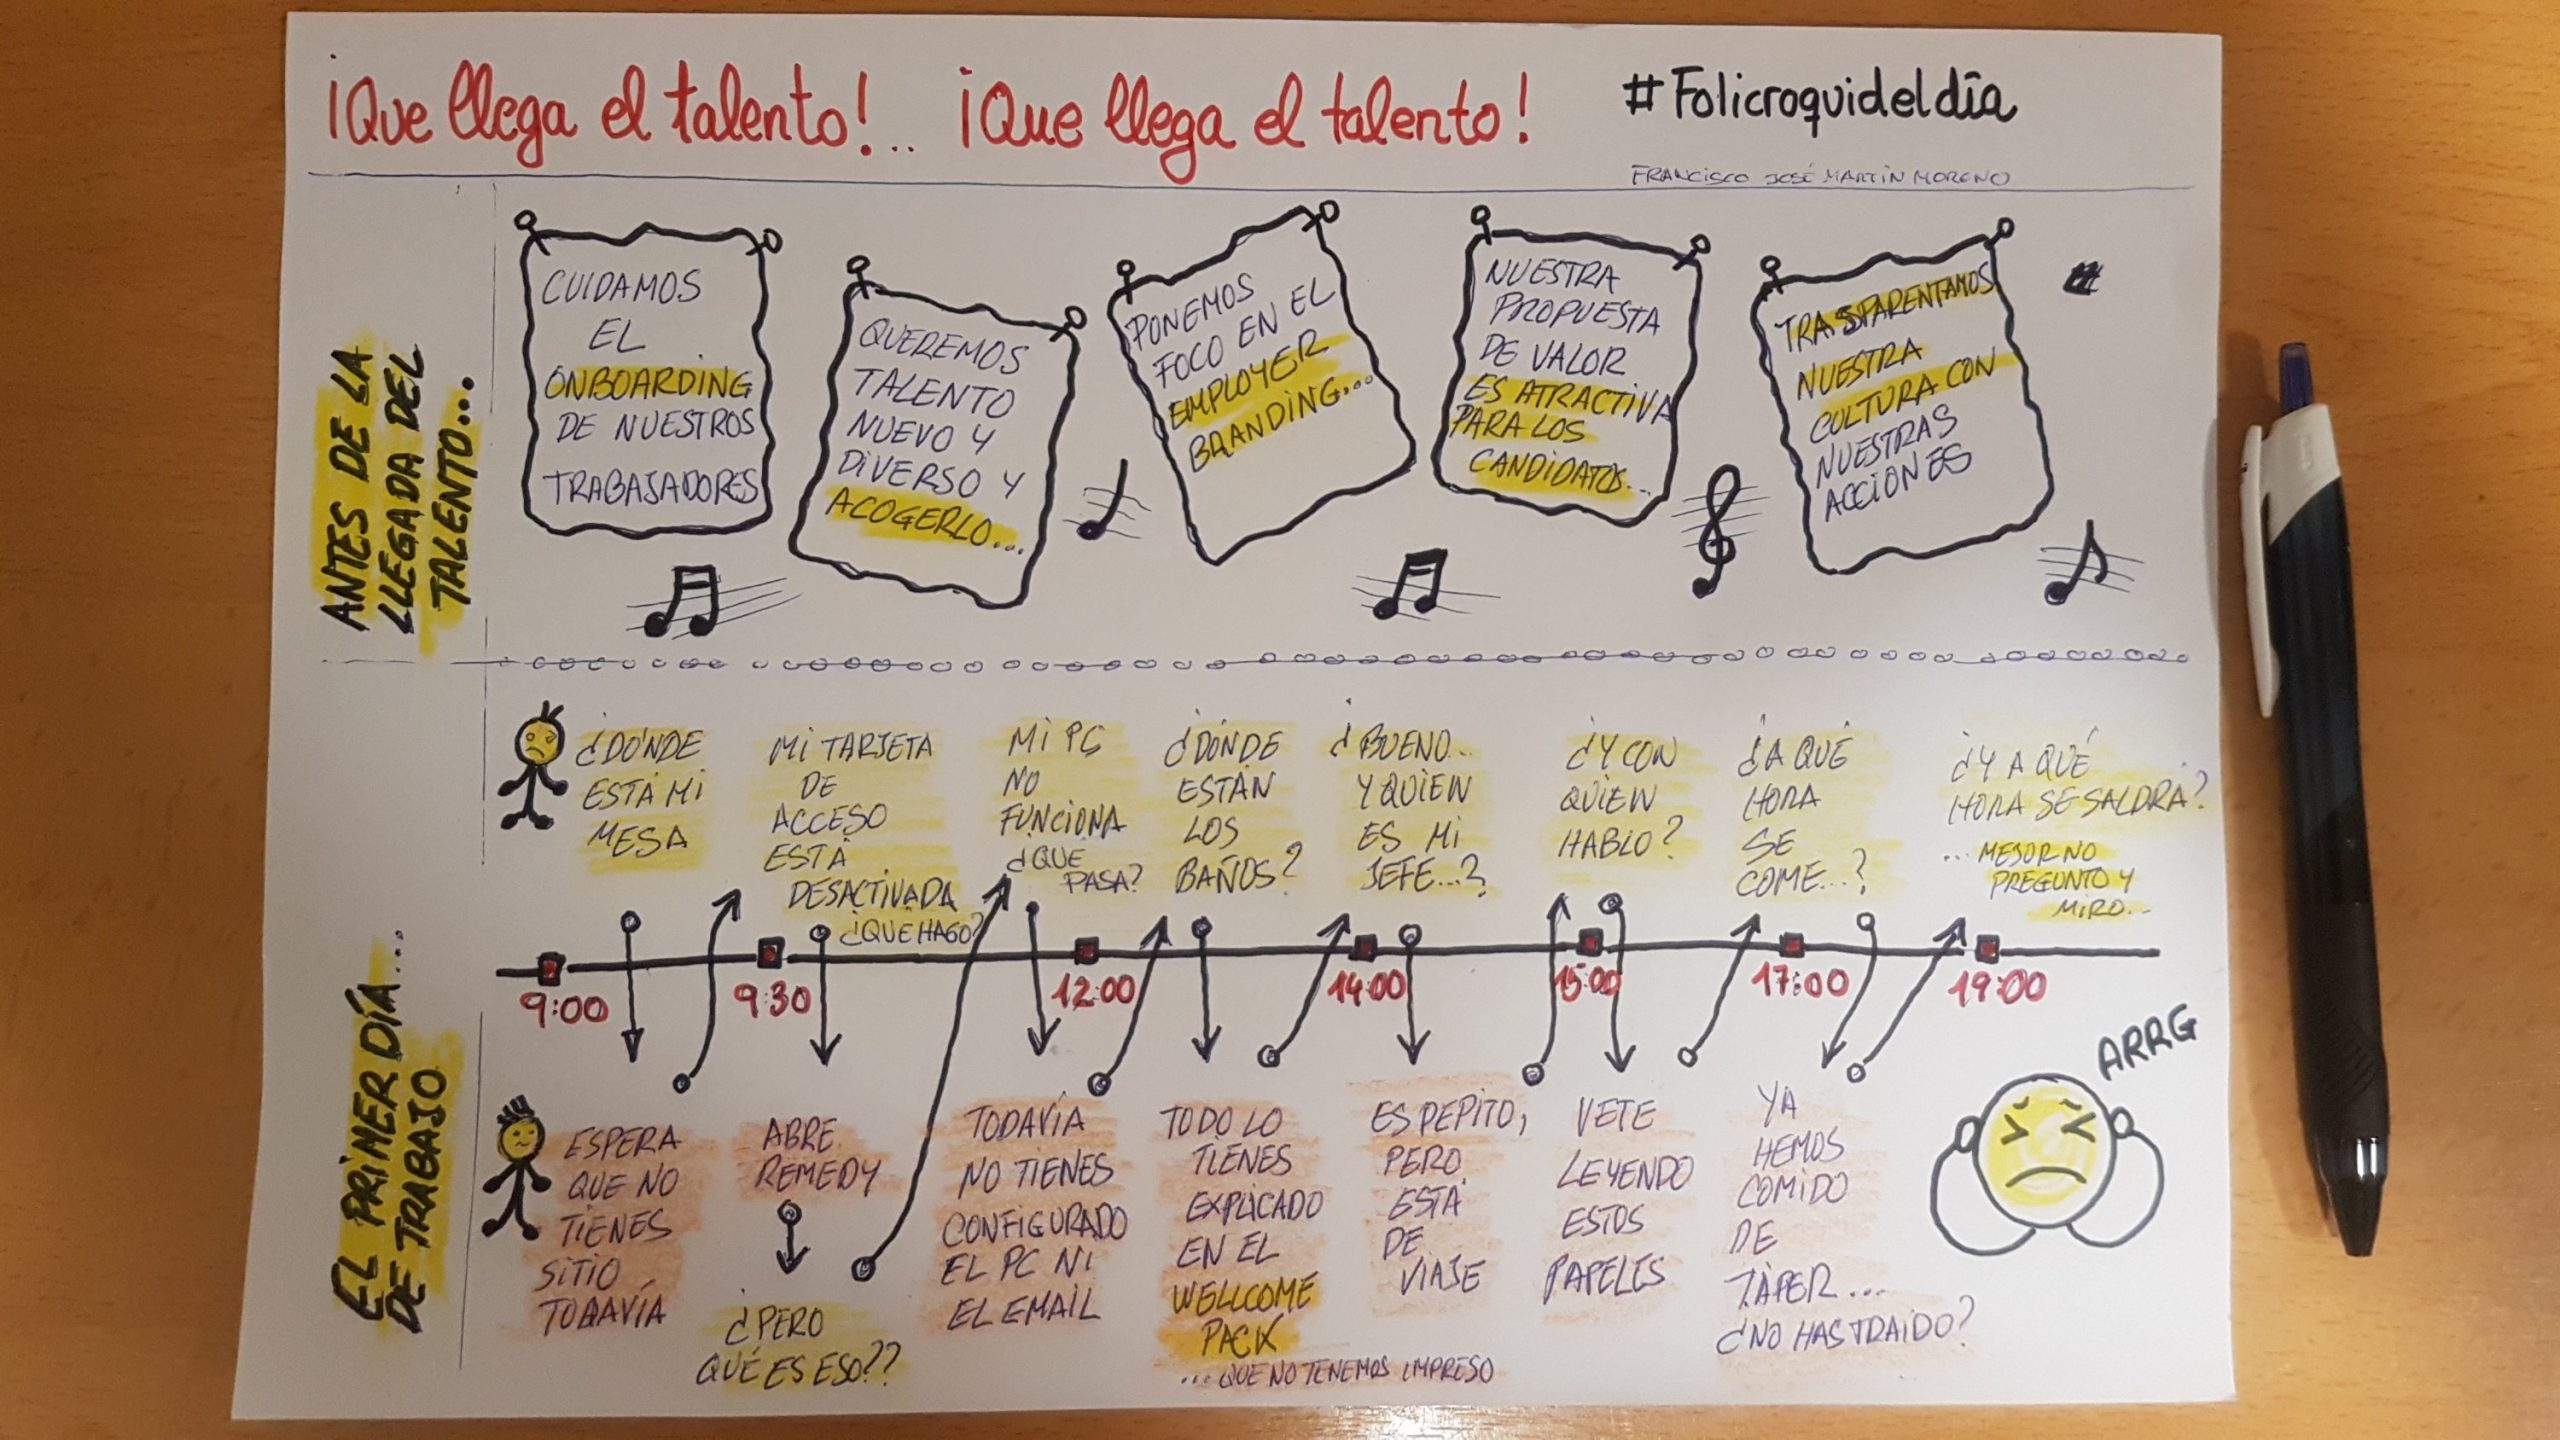 ¡Que llega el talento!.. ¡Que llega el talento!
#Folicroquideldía
FRANCISCO JOSÉ MARTÍN MORENO
ANTES DE LA
LLEGADA DEL
TALENTO...
CUIDAMOS
EL
ONBOARDING
DE NUESTROS
TRABAJADORES
QUEREMOS
TALENTO
NUEVO Y
DIVERSO Y
ACOGERLO...
PONEMOS
FOCO EN EL
EMPLOYER
BRANDING...
NUESTRA
PROPUESTA
DE VALOR
ES ATRACTIVA
PARA LOS
CANDIDATOS...
TRASPARENTAMOS
NUESTRA
CULTURA CON
NUESTRAS
ACCIONES
EL PRIMER DÍA...
DE TRABAJO
¿DÓNDE
ESTÁ MI
MESA
MI TARJETA
DE
ACCESO
ESTÁ
DESACTIVADA
¿QUÉ HAGO?
MI PC
NO
FUNCIONA
¿QUE
PASA?
¿DÓNDE
ESTÁN
LOS
BAÑOS?
¿BUENO...
Y QUIEN
ES MI
JEFE...?
¿Y CON
QUIEN
HABLO?
¿A QUÉ
HORA
SE
COME...?
¿Y A QUÉ
HORA SE SALDRÁ?
... MEJOR NO
PREGUNTO Y
MIRO...
9:00
9:30
12:00
14:00
15:00
17:00
19:00
ESPERA
QUE NO
TIENES
SITIO
TODAVÍA
ABRE
REMEDY
¿PERO
QUÉ ES ESO??
TODAVÍA
NO TIENES
CONFIGURADO
EL PC NI
EL EMAIL
TODO LO
TIENES
EXPLICADO
EN EL
WELLCOME
PACK
... QUE NO TENEMOS IMPRESO
ES PEPITO,
PERO
ESTÁ
DE
VIAJE
VETE
LEYENDO
ESTOS
PAPELES
YA
HEMOS
COMIDO
DE
TÁPER...
¿NO HAS TRAIDO?
ARRG